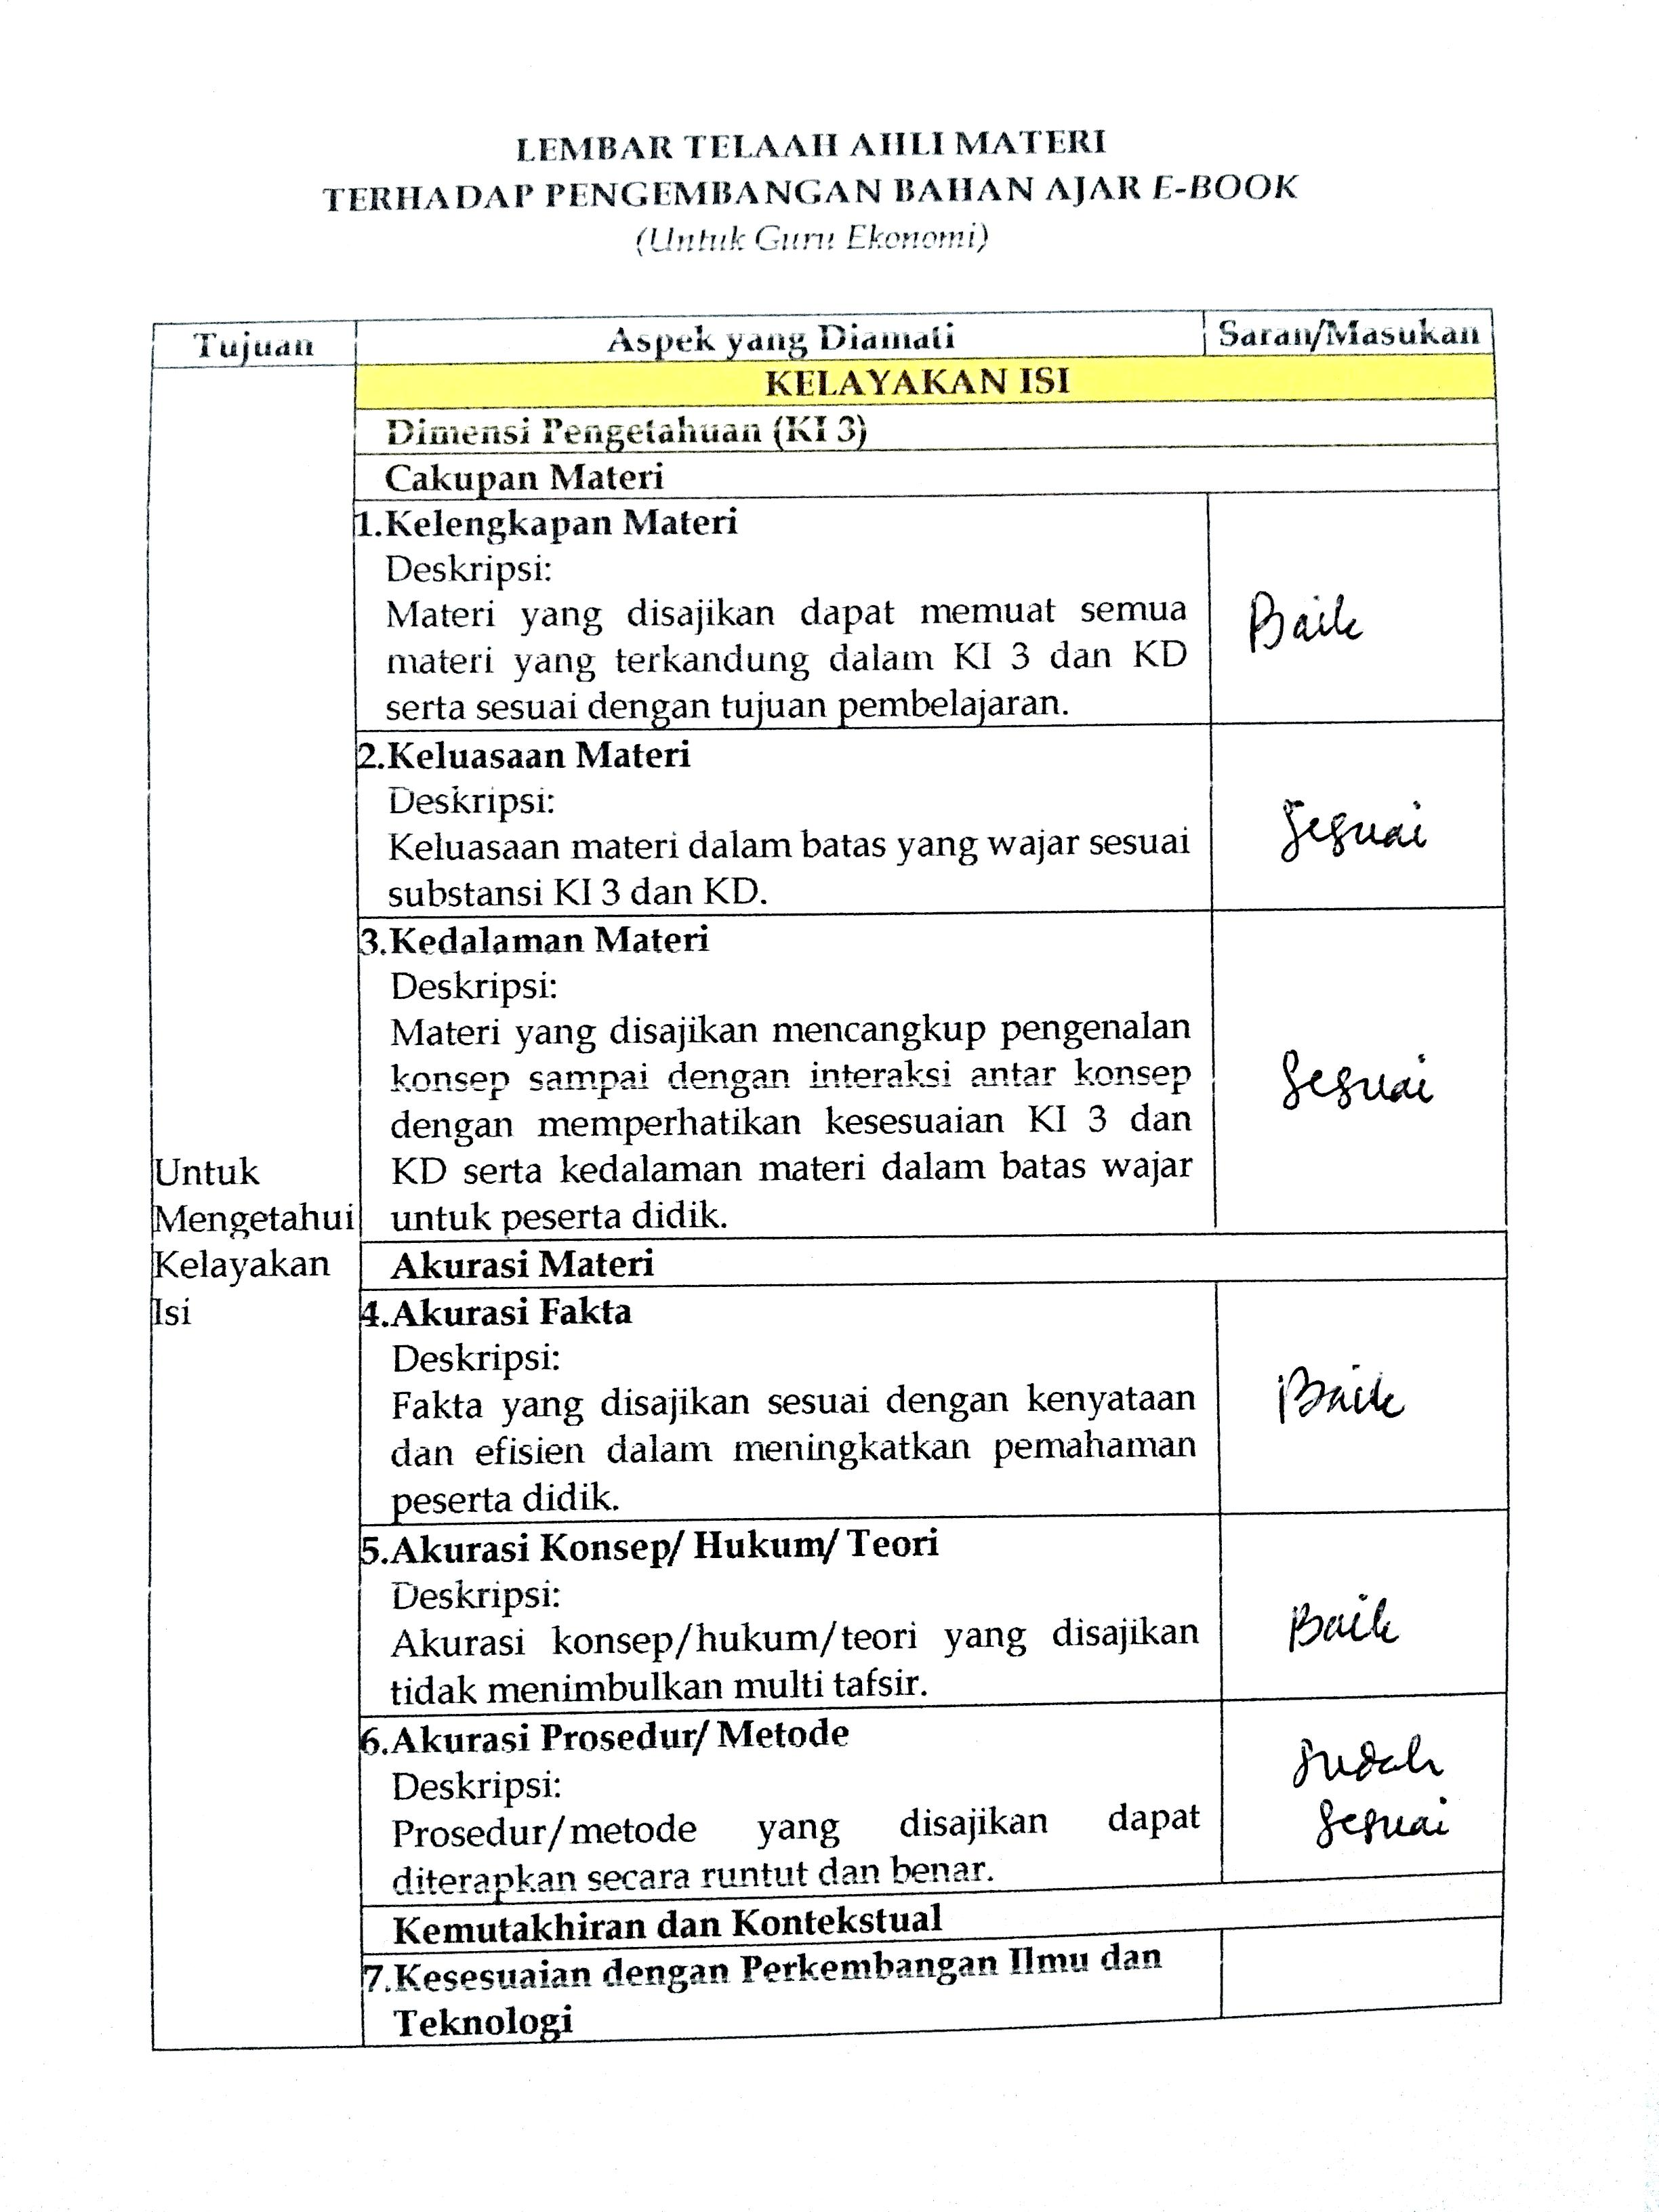 LEMBAR TELAAH AHLI MATERI
TERHADAP PENGEMBANGAN BAHAN AJAR E-BOOK
(Untuk Guru Ekonomi)
Tujuan Aspek yang Diamati Saran/Masukan
KELAYAKAN ISI
Dimensi Pengetahuan (KI 3)
Cakupan Materi
1.Kelengkapan Materi
Deskripsi:
Materi yang disajikan dapat memuat semua
materi yang terkandung dalam KI 3 dan KD
serta sesuai dengan tujuan pembelajaran.
Baik
2.Keluasaan Materi
Deskripsi:
Keluasaan materi dalam batas yang wajar sesuai
substansi KI 3 dan KD.
Sesuai
3.Kedalaman Materi
Deskripsi:
Materi yang disajikan mencangkup pengenalan
konsep sampai dengan interaksi antar konsep
dengan memperhatikan kesesuaian KI 3 dan
KD serta kedalaman materi dalam batas wajar
untuk peserta didik.
Sesuai
Untuk
Mengetahui
Kelayakan
Isi
Akurasi Materi
4.Akurasi Fakta
Deskripsi:
Fakta yang disajikan sesuai dengan kenyataan
dan efisien dalam meningkatkan pemahaman
peserta didik.
Baik
5.Akurasi Konsep/ Hukum/ Teori
Deskripsi:
Akurasi konsep/hukum/teori yang disajikan
tidak menimbulkan multi tafsir.
Baik
6.Akurasi Prosedur/ Metode
Deskripsi:
Prosedur/metode yang disajikan dapat
diterapkan secara runtut dan benar.
Sudah
Sesuai
Kemutakhiran dan Kontekstual
7.Kesesuaian dengan Perkembangan Ilmu dan
Teknologi